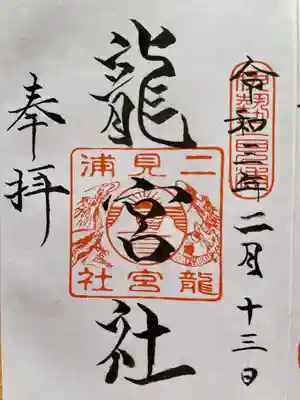 令和三年二月十三日
龍宮社
奉拝
二見浦
龍宮社